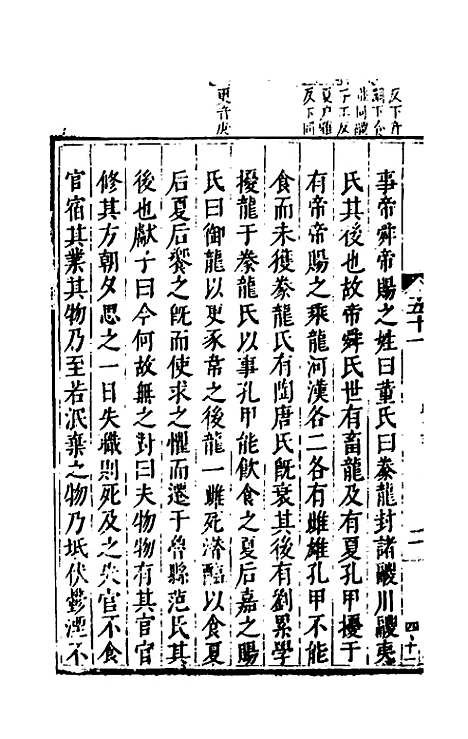 事帝舜帝賜之姓曰董氏曰豢龍封諸鬷川鬷夷
氏其後也故帝舜氏世有畜龍及有夏孔甲擾于
有帝帝賜之乘龍河漢各二各有雌雄孔甲不能
食而未獲豢龍氏有陶唐氏旣衰其後有劉累學
擾龍于豢龍氏以事孔甲能飲食之夏后嘉之賜
氏曰御龍以更豕韋之後龍一雌死潛醢以食夏
后夏后饗之旣而使求之懼而遷于魯縣范氏其
後也獻子曰今何故無之對曰夫物物有其官官
修其方朝夕思之一日失職則死及之失官不食
官宿其業其物乃至若泯棄之物乃坻伏鬱湮不
夏戶雅
反下同
更音庚
五十一